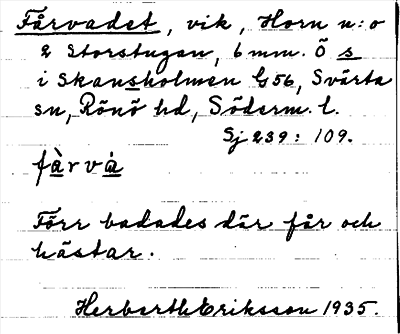 Fårvadet, vik, Horn n:o
2 Storstugan, 6 mm. Ö s
i Skansholmen G56, Svärta
sn, Rönö hd, Söderm. l.
Sj 239: 109.
fàrvá
Förr badades där får och
hästar.
Herberth Eriksson 1935.